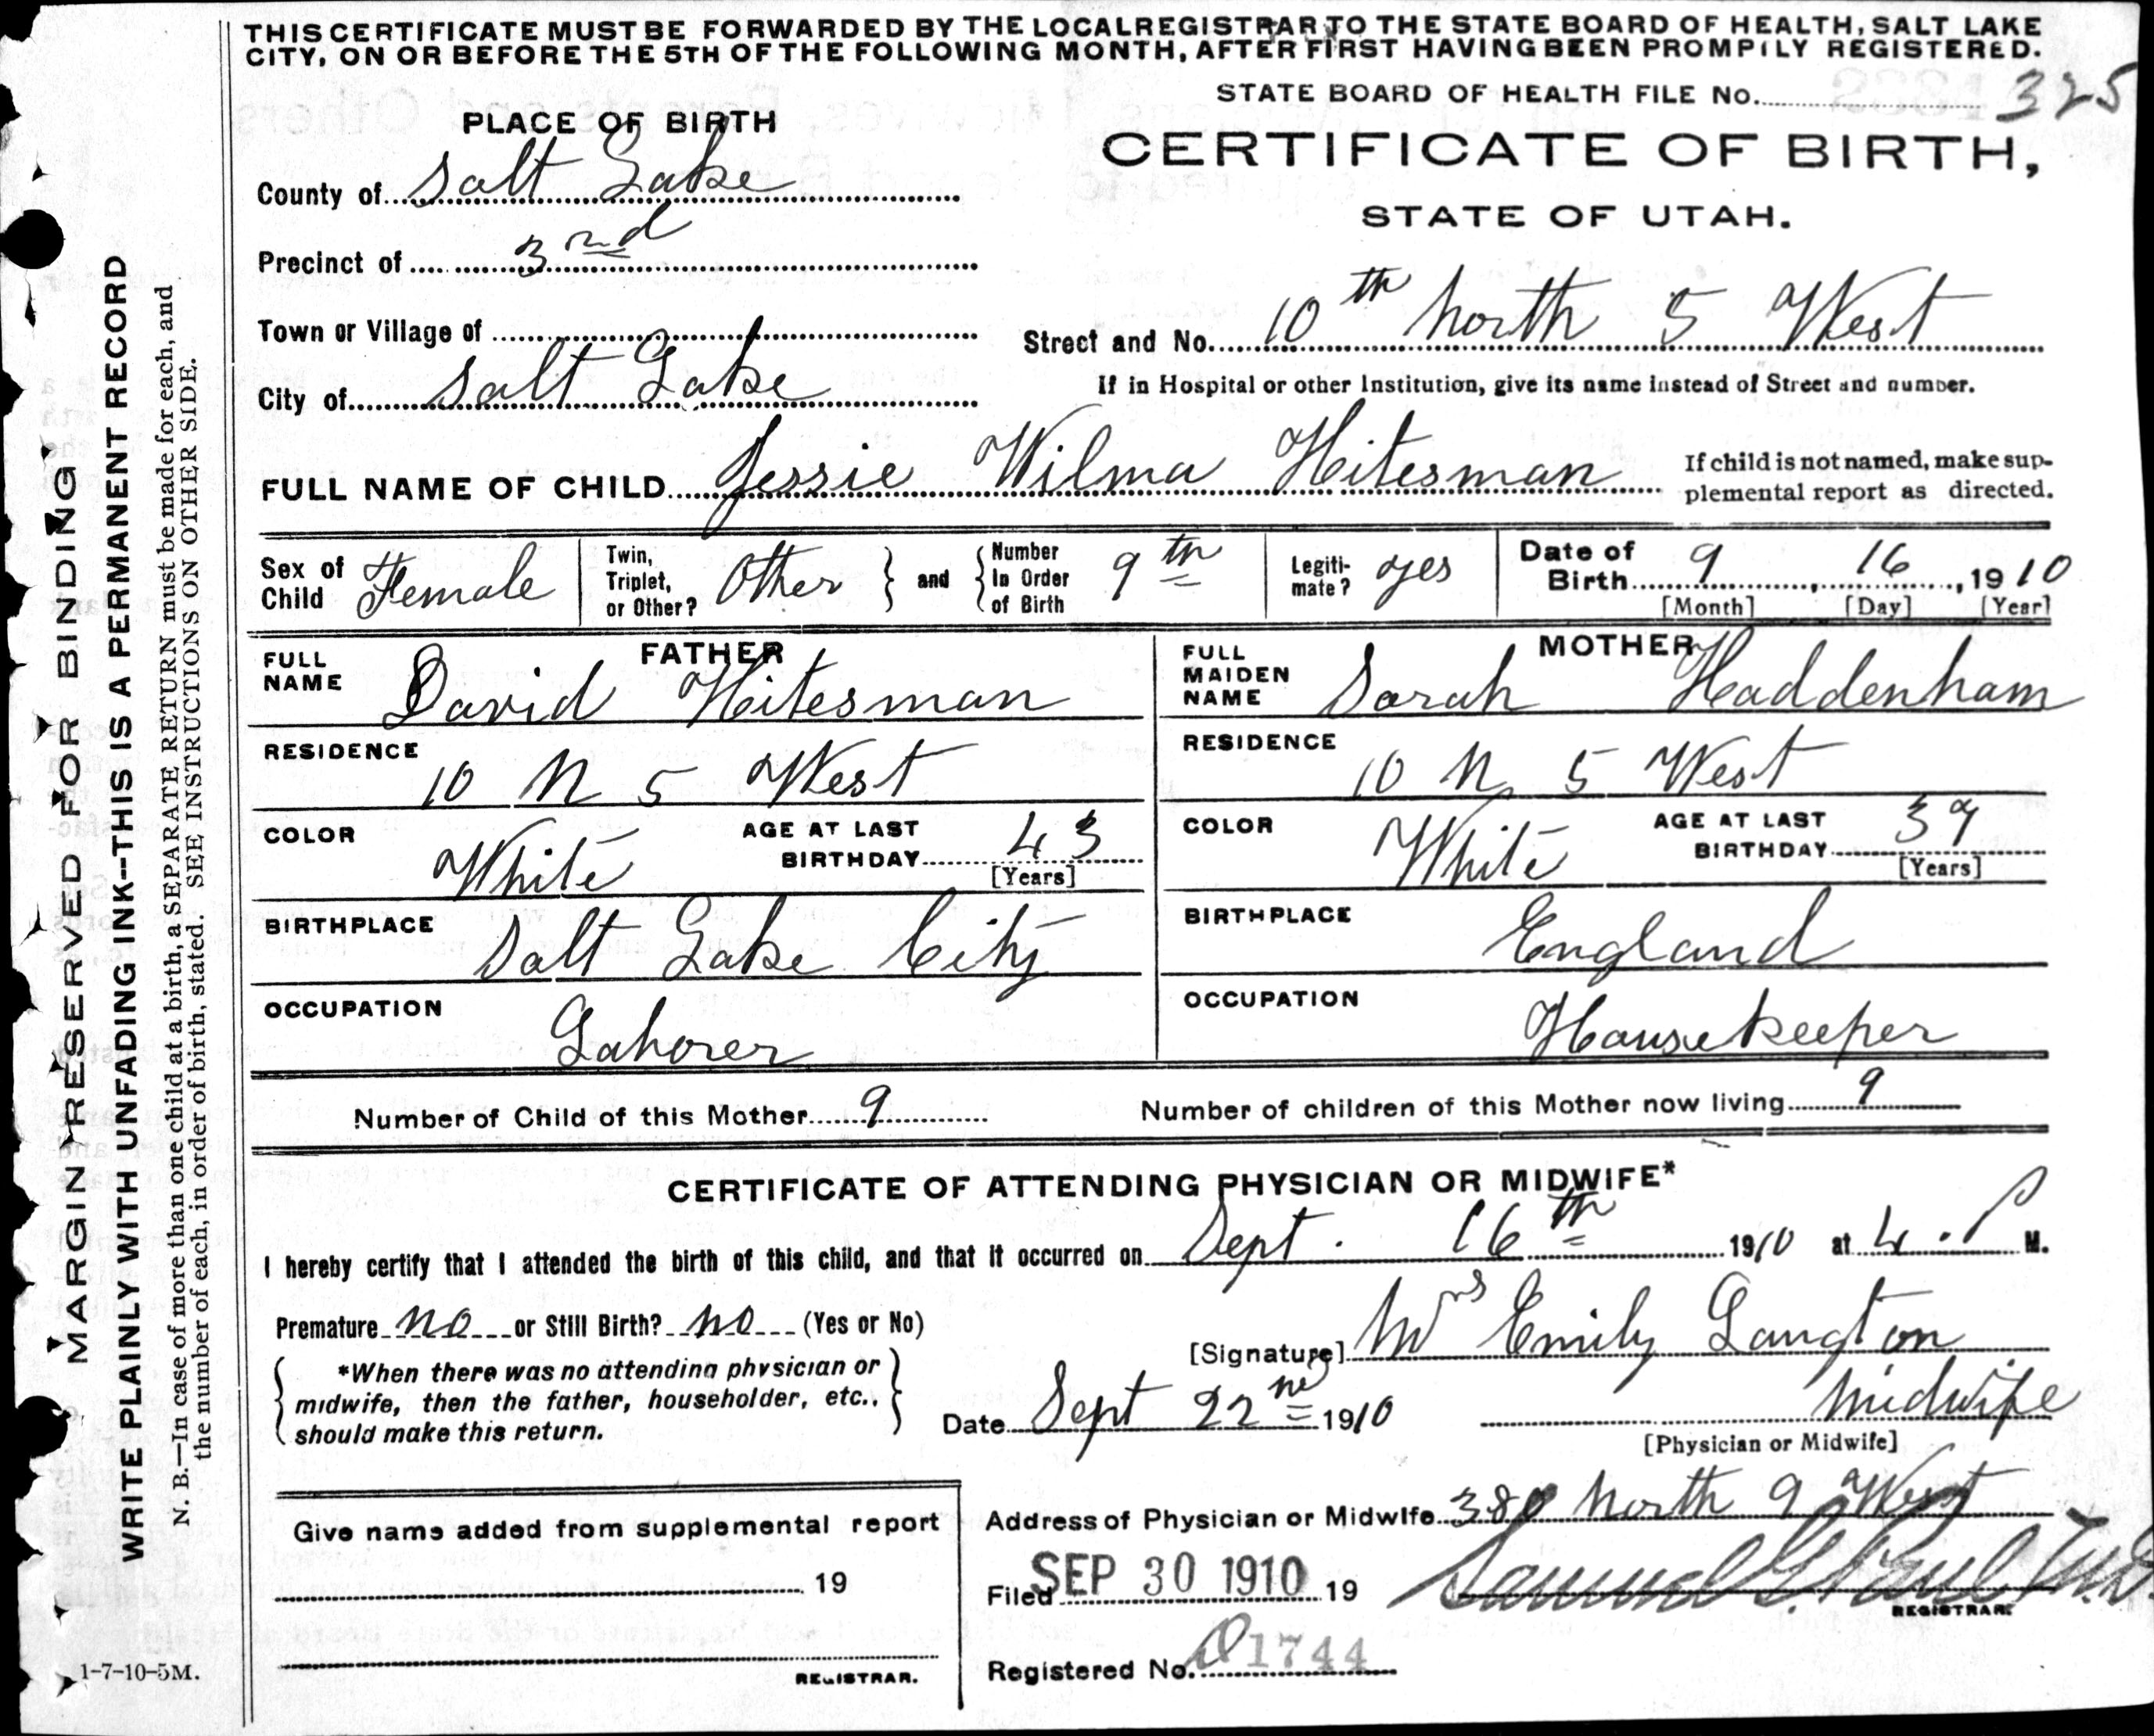 THIS CERTIFICATE MUST BE FORWARDED BY THE LOCALREGISTRAR TO THE STATE BOARD OF HEALTH, SALT LAKE
CITY, ON OR BEFORE THE 5TH OF THE FOLLOWING MONTH, AFTER FIRST HAVING BEEN PROMPTLY REGISTERED.
STATE BOARD OF HEALTH FILE No. 325
PLACE OF BIRTH
CERTIFICATE OF BIRTH,
STATE OF UTAH.
County of Salt Lake
Precinct of 3rd
Town or Village of
Street and No. 10th North 5 West
City of Salt Lake
If in Hospital or other Institution, give its name instead of Street and number.
FULL NAME OF CHILD Jessie Wilma Hitesman
If child is not named, make sup-
plemental report as directed.
Sex of Child Female
Twin, Triplet, or Other? Other
and Number In Order of Birth 9th
Legiti-mate? yes
Date of Birth 9, 16, 1910
[Month] [Day] [Year]
FATHER
FULL NAME David Hitesman
RESIDENCE 10 N 5 West
COLOR White
AGE AT LAST BIRTHDAY 43
[Years]
BIRTHPLACE Salt Lake City
OCCUPATION Laborer
MOTHER
FULL MAIDEN NAME Sarah Haddenham
RESIDENCE 10 N 5 West
COLOR White
AGE AT LAST BIRTHDAY 39
[Years]
BIRTHPLACE England
OCCUPATION Housekeeper
Number of Child of this Mother 9
Number of children of this Mother now living 9
CERTIFICATE OF ATTENDING PHYSICIAN OR MIDWIFE*
I hereby certify that I attended the birth of this child, and that it occurred on Sept. 16th 1910 at 4. P M.
Premature no or Still Birth? no (Yes or No)
[Signature] Mrs Emily Langton
*When there was no attending physician or
midwife, then the father, householder, etc.,
should make this return.
Date Sept 22nd 1910
Midwife
[Physician or Midwife]
Give name added from supplemental report
19
REGISTRAR.
Address of Physician or Midwife 380 North 9 West
Filed SEP 30 1910 19
Samuel G. Paul M.D.
REGISTRAR.
Registered No. 01744
1-7-10-5M.
MARGIN RESERVED FOR BINDING
WRITE PLAINLY WITH UNFADING INK--THIS IS A PERMANENT RECORD
N. B.—In case of more than one child at a birth, a SEPARATE RETURN must be made for each, and
the number of each, in order of birth, stated. SEE INSTRUCTIONS ON OTHER SIDE.